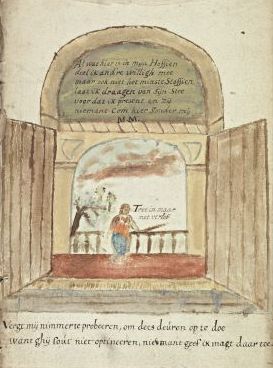 Al wat hier is in mijn Hoffien
deel ik andre willigh mee
maar ook niet het minste Stoffien
laat ik draagen van Sijn Stee
voor dat ik present en zij
niemant Com hier Sonder mij
M M
Tree in maar
met verlof
Vergt mij nimmer te probeeren, om dees deuren op te doe
want ghij Sout niet optineeren, niemant geef ik magt daar toe